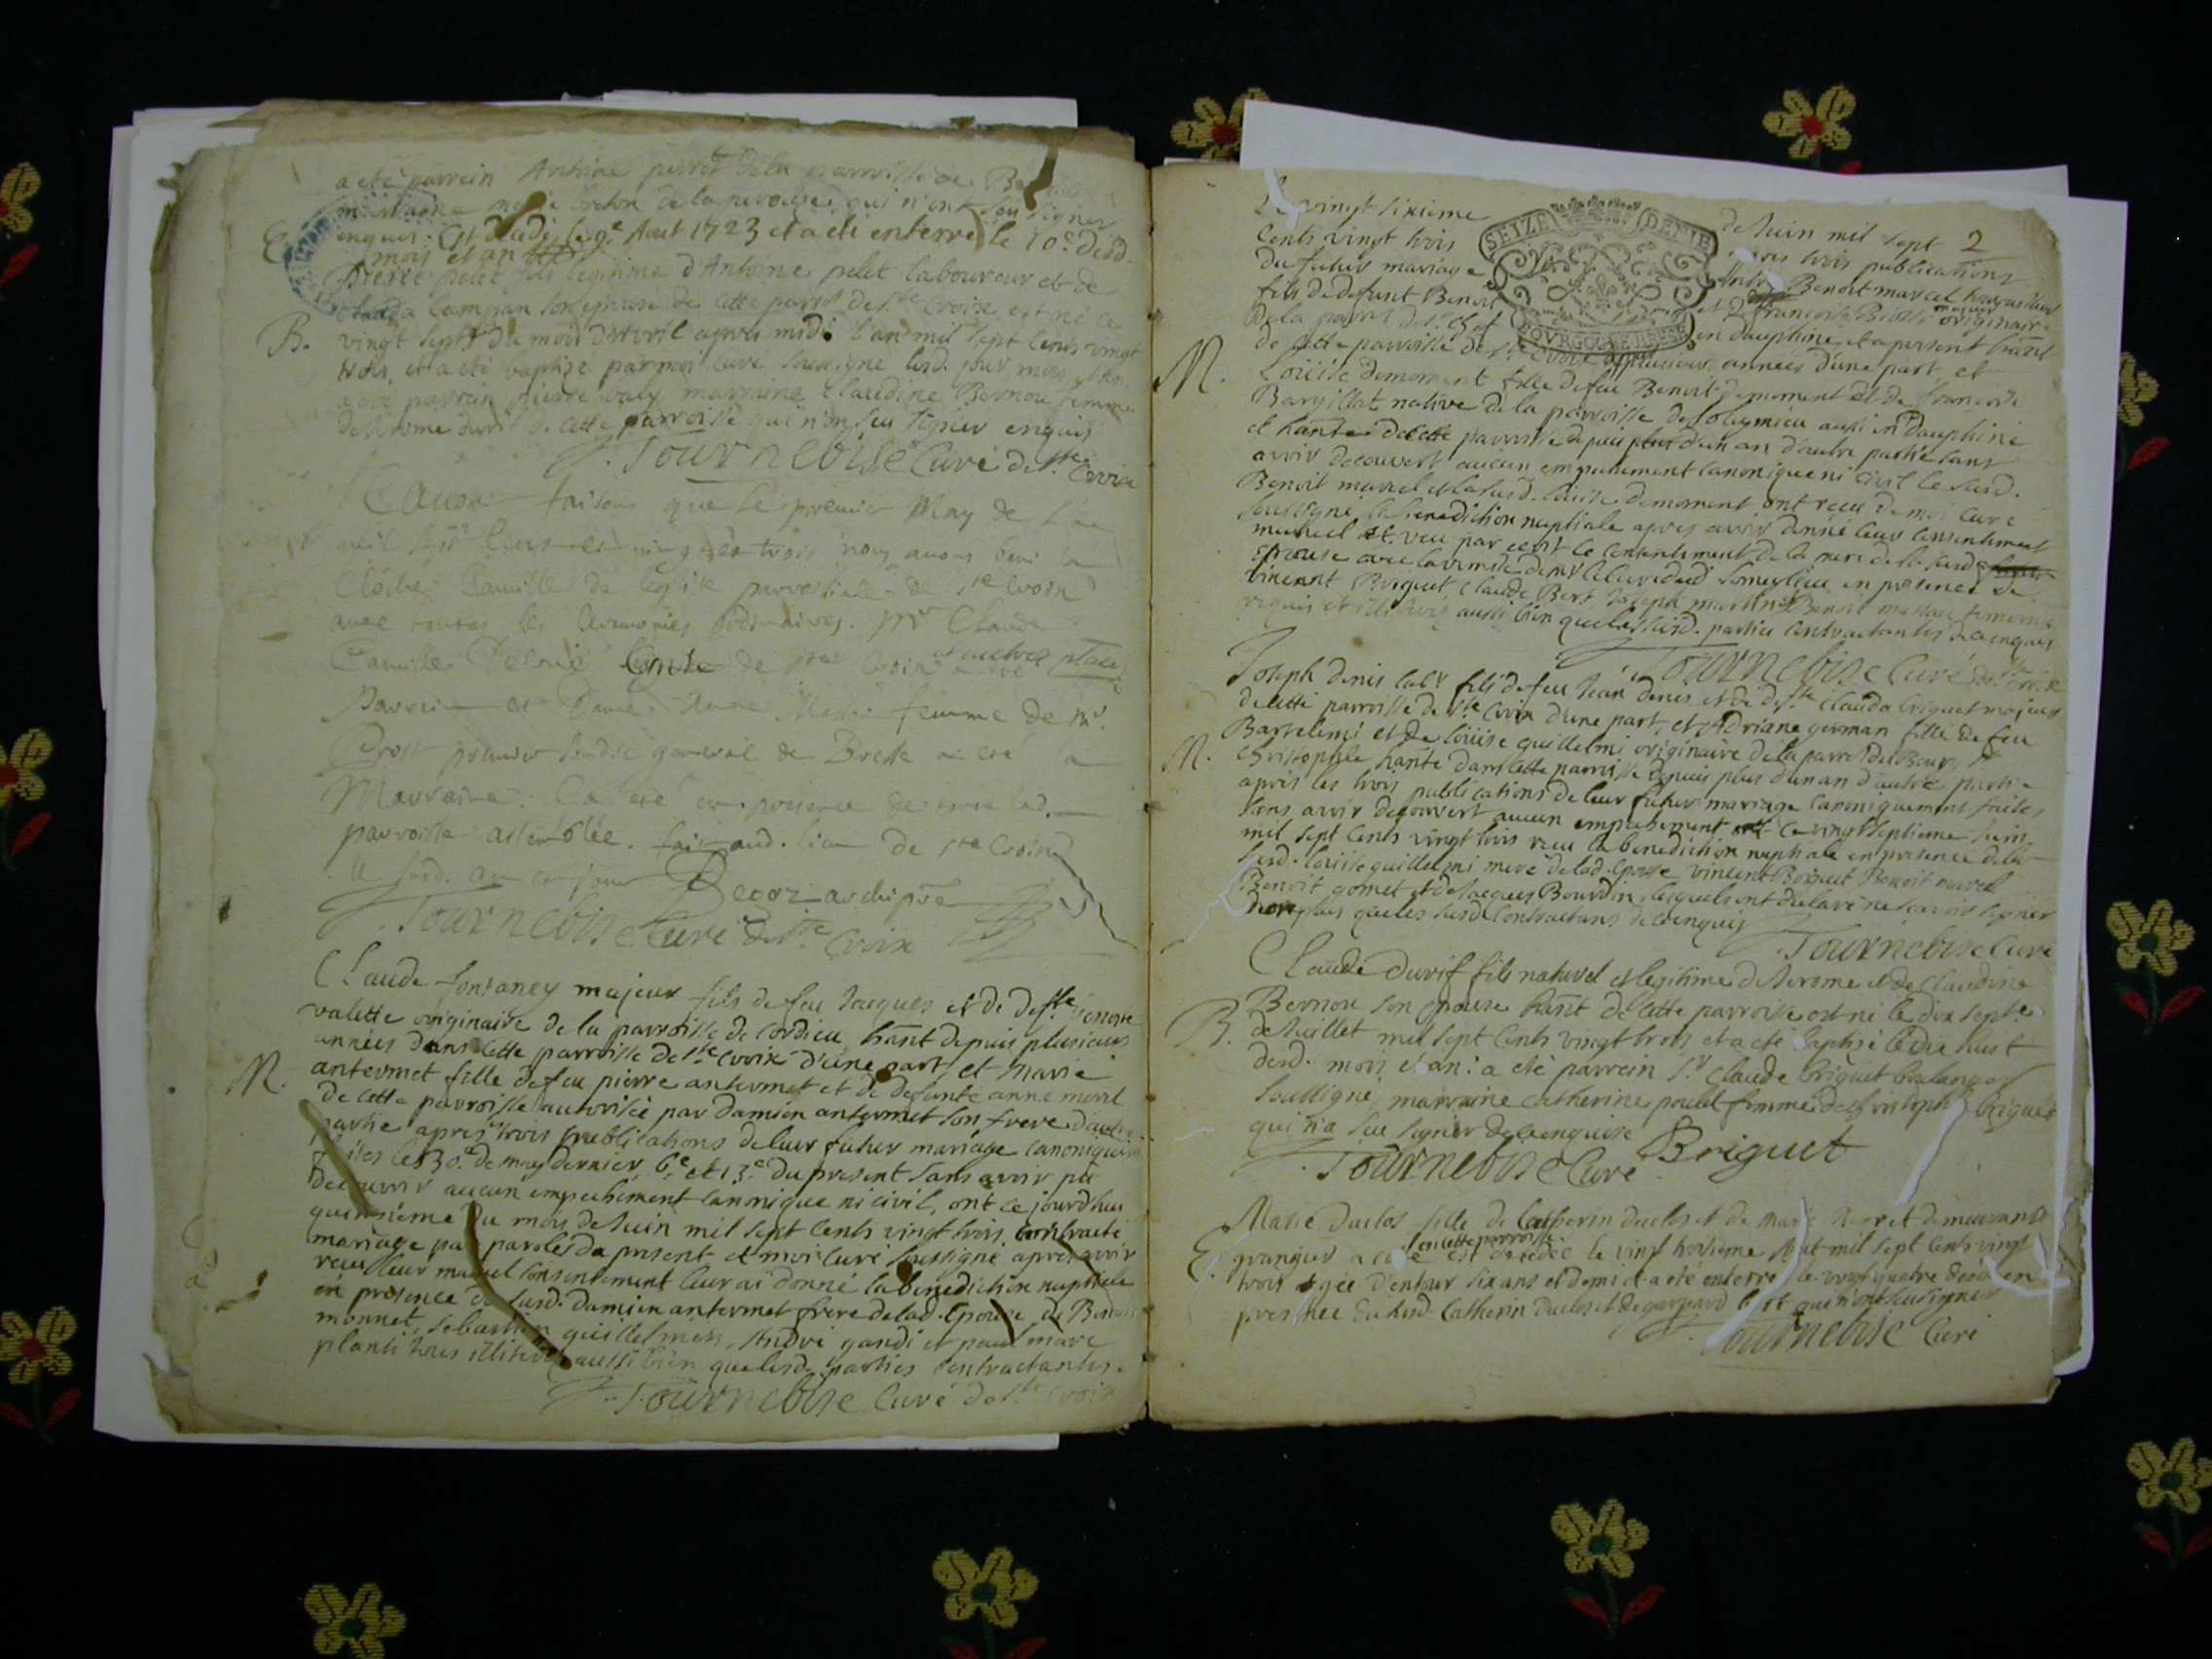 a eté parrein Antoine perret de la parroisse de
marraine de la paroisse qui n'ont sceu signer
enquis. Est decedé le 9e Aout 1723 et a eté enterré le 10e desd.
mois et an
E
pierre pelet fils legitime d'Antoine pelet laboureur et de
Clauda Campan son epouse de cette parroe de Ste Croix est né ce
B. vingt sept du mois d'Avril apres midi l'an mil sept cents vingt
trois, et a eté baptizé par moi curé soussigné lesd. jour mois et an
a eté parrein pierre marraine Claudine Bernou femme
de Jerome durif de cette parroisse qui n'ont sceu signer enquis
Tournebise Curé de Ste Croix
faisons que le premier May de l'an
mil sept cens et vingt et trois nous avons beni la
Cloche Camille de l'eglise parroissiale de Ste Croix
avec toutes les ceremonies ordinaires. Mr Claude
Camille Comte de Ste Croix et autres places a eté
Parrein et Dame femme de Mr
Prost premier sindic general de Bresse a eté la
Marraine. Ca eté en presence de toute lad.
parroisse assemblée. fait aud. lieu de Ste Croix
le susd. an et jour Begoz archipre
Tournebise Curé de Ste Croix
Claude fontaney majeur fils de feu Jacques et de deffte
valette originaire de la parroisse de Cordieu, hant depuis plusieurs
années dans cette parroisse de Ste Croix d'une part, et Marie
M. antermet fille de feu pierre antermet et de defunte anne morel
de cette parroisse authorisée par Damien antermet son frere d'autre
partie apres les trois publications de leur futur mariage canoniquem
faites le 30e de may dernier, 6e et 13e du present sans avoir pû
decouvrir aucun empechement canonique ni civil, ont ce jourd'hui
quinsieme du mois de Juin mil sept cents vingt trois, contracté
mariage par paroles de present et moi curé soussigné apres avoir
receu leur mutuel consentement leur ai donné la benediction nuptiale
en presence du susd. Damien antermet frere de lad. Epouse, de Benoit
monnet, sebastien guillelmon, André gandi et paul marc
planti tous illiterés aussi bien que lesd. parties contractantes.
Tournebise Curé de Ste Croix
Le vingt sixieme de Juin mil sept 2
cents vingt trois apres trois publications
du futur mariage entre Benoit marcel
fils de defunt Benoit et de francoise majeur originaire
de la parroe de St Chef en dauphiné et a present hant
M. de cette parroisse de Ste Croix depuis plusieurs années d'une part, et
Loüise demoment fille de feu Benoit demoment et de francoise
Bargillat native de la parroisse de Solaymieu aussi en dauphiné
et hante de cette parroisse depuis plus d'un an d'autre partie sans
avoir decouvert aucun empechement canonique ni civil le susd.
Benoit marcel et la susd. loüise demoment ont receu de moi curé
soussigné la benediction nuptiale apres avoir donné leur consentement
mutuel et veu par ecrit le consentement de la mere de la susd.
epouse avec la remise de Mr le Curé dud. Someylieu en presence de
vincent Briguet, Claude Bert Joseph martin et Benoit masson temoins
requis et illiterés aussi bien que les susd. parties contractantes de ce enquis
Tournebise Curé de Ste Croix
Joseph denis labr fils de feu Jean denis et de deffte Clauda briguet majeur
de cette parroisse de Ste Croix d'une part, et Adriane german fille de feu
Barrelemi et de loüise guillelmi originaire de la parroe de Bourg St
M. Christophle hante dans cette parroisse depuis plus d'un an d'autre partie
apres les trois publications de leur futur mariage canoniquement faites
sans avoir decouvert aucun empechement ont ce vingt septieme Juin
mil sept cents vingt trois receu la benediction nuptiale en presence de la
susd. loüise guillelmi mere de lad. epouse vincent Briguet Benoit marcel
Benoit gomet et de Jacques Bourdin, lesquels ont declaré ne scavoir signer
non plus que les susd. contractans de ce enquis
Tournebise Curé
Claude durif fils naturel et legitime de Jerome et de Claudine
Bernou son epouse hant de cette parroisse est né le dix septe
B. de Juillet mil sept cents vingt trois et a eté baptisé le dix huit
desd. mois et an: a eté parrein Sr Claude briguet boulanger
soussigné, marraine Catherine poulet femme de Christophle briguet
qui n'a sceu signer de ce enquise Briguet
Tournebise Curé
Marie Duclos fille de Catherin duclos et de marie demeurants
en cette parroisse
E. grangers a est decedée le vingt troisieme Aout mil sept cents vingt
trois agée d'entour six ans et demi et a eté enterrée le vingt quatre dud. en
presence dudit Catherin duclos et de gaspard qui n'ont sceu signer
Tournebise Curé
SEIZE DENIE
BOVRGOGNE BRESSE